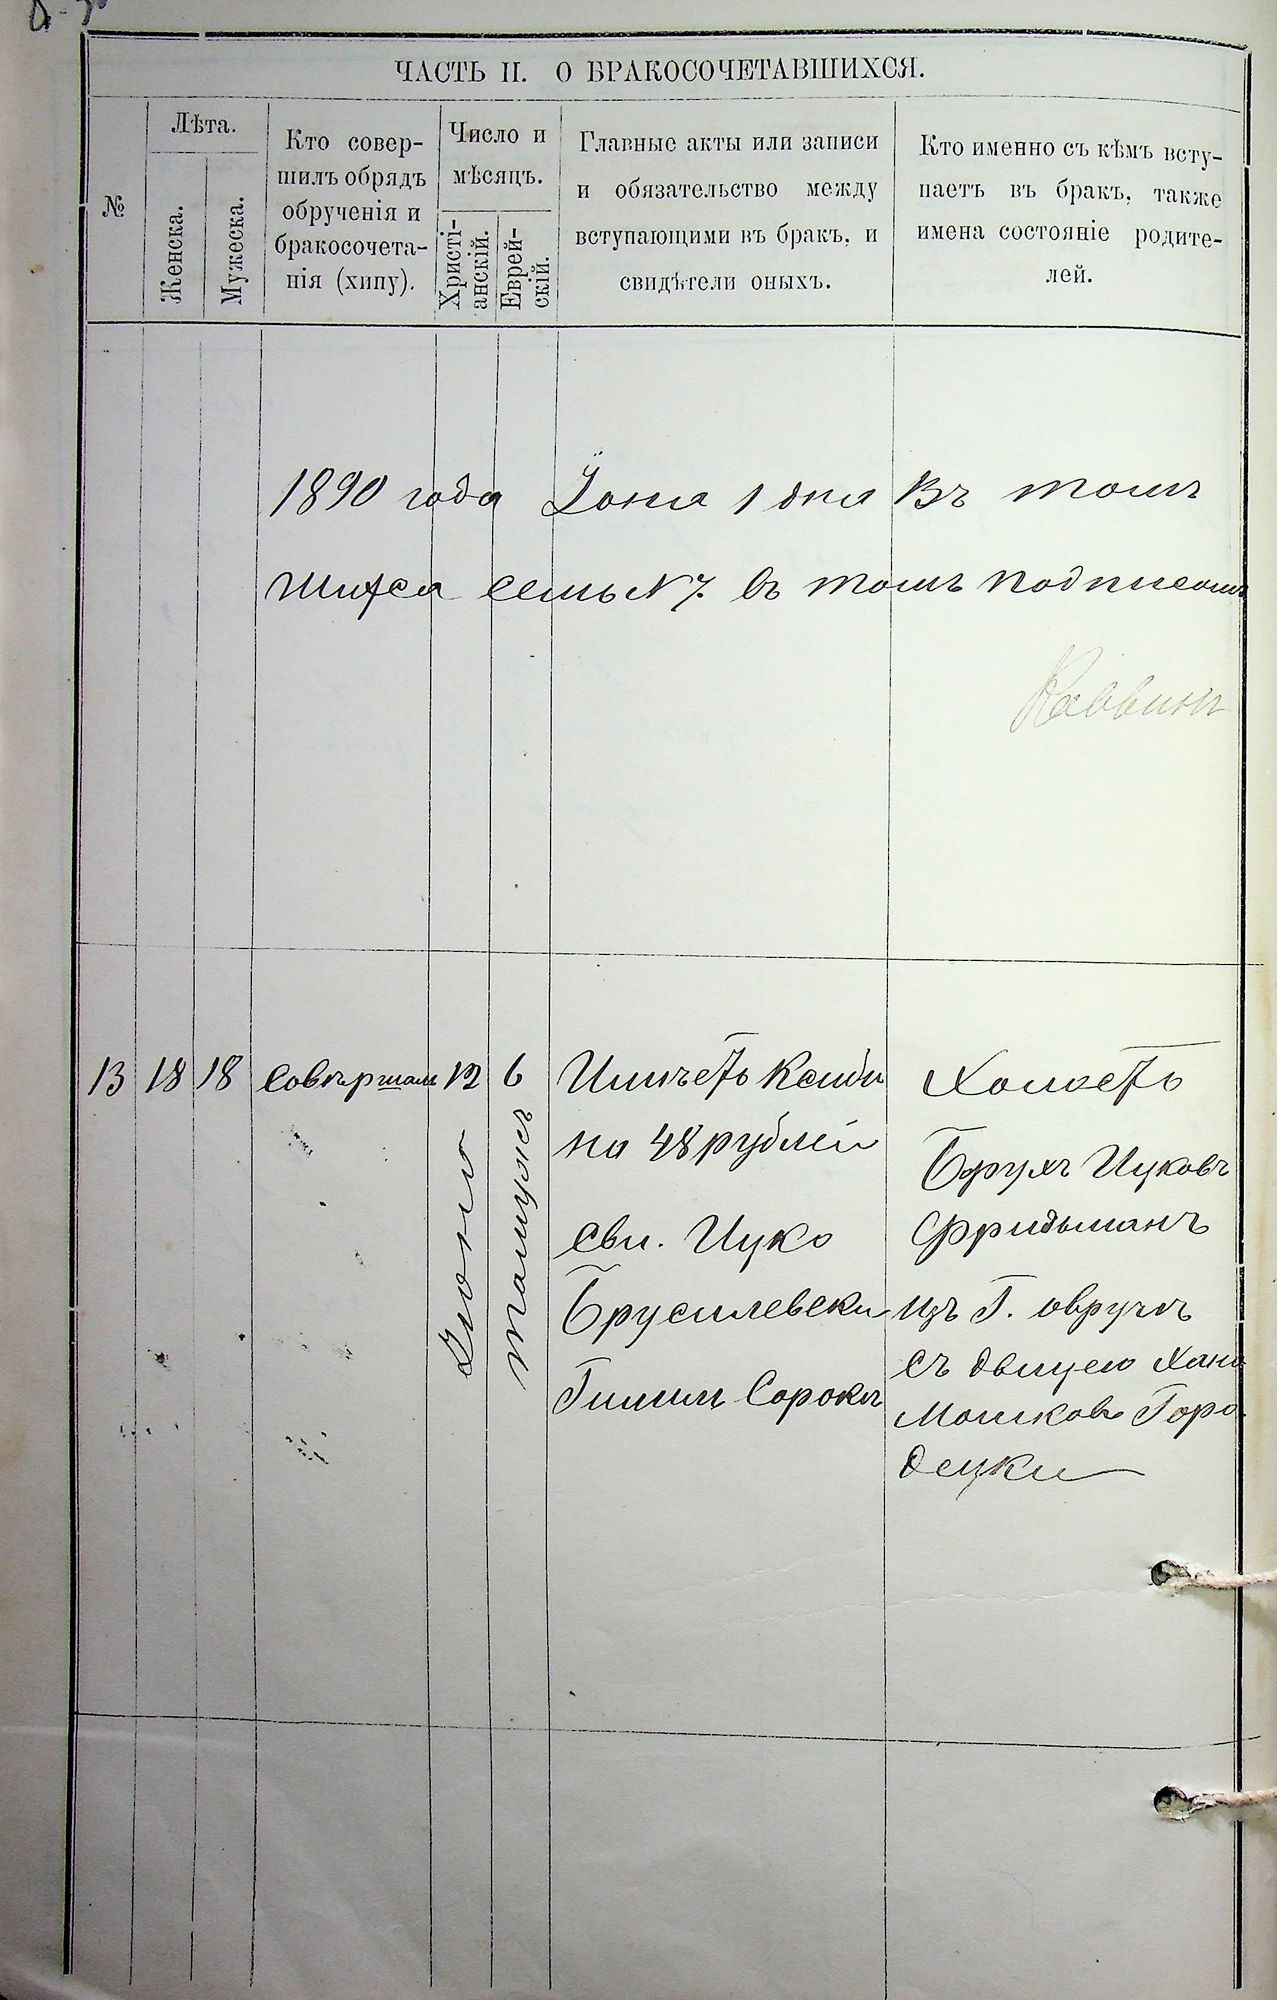 ЧАСТЬ II. О БРАКОСОЧЕТАВШИХСЯ.
№
Лѣта.
Женска.
Мужеска.
Кто совер-
шилъ обрядъ
обрученія и
бракосочета-
нія (хипу).
Число и
мѣсяцъ.
Христі-
анскій.
Еврей-
скій.
Главные акты или записи
и обязательство между
вступающими въ бракъ, и
свидѣтели оныхъ.
Кто именно съ кѣмъ всту-
паетъ въ бракъ, также
имена состояніе родите-
лей.
1890 года 1 дня Въ томъ
семь N 7. въ томъ
Раввинъ
13
18
18
12
6
на 48 рублей
Сви. Ицко
Брусилевски
Сорока
Холостъ
Брухъ Ицковъ
Фридьманъ
изъ Г. овруча
съ двицею Хана
Мошкова Горо
децки